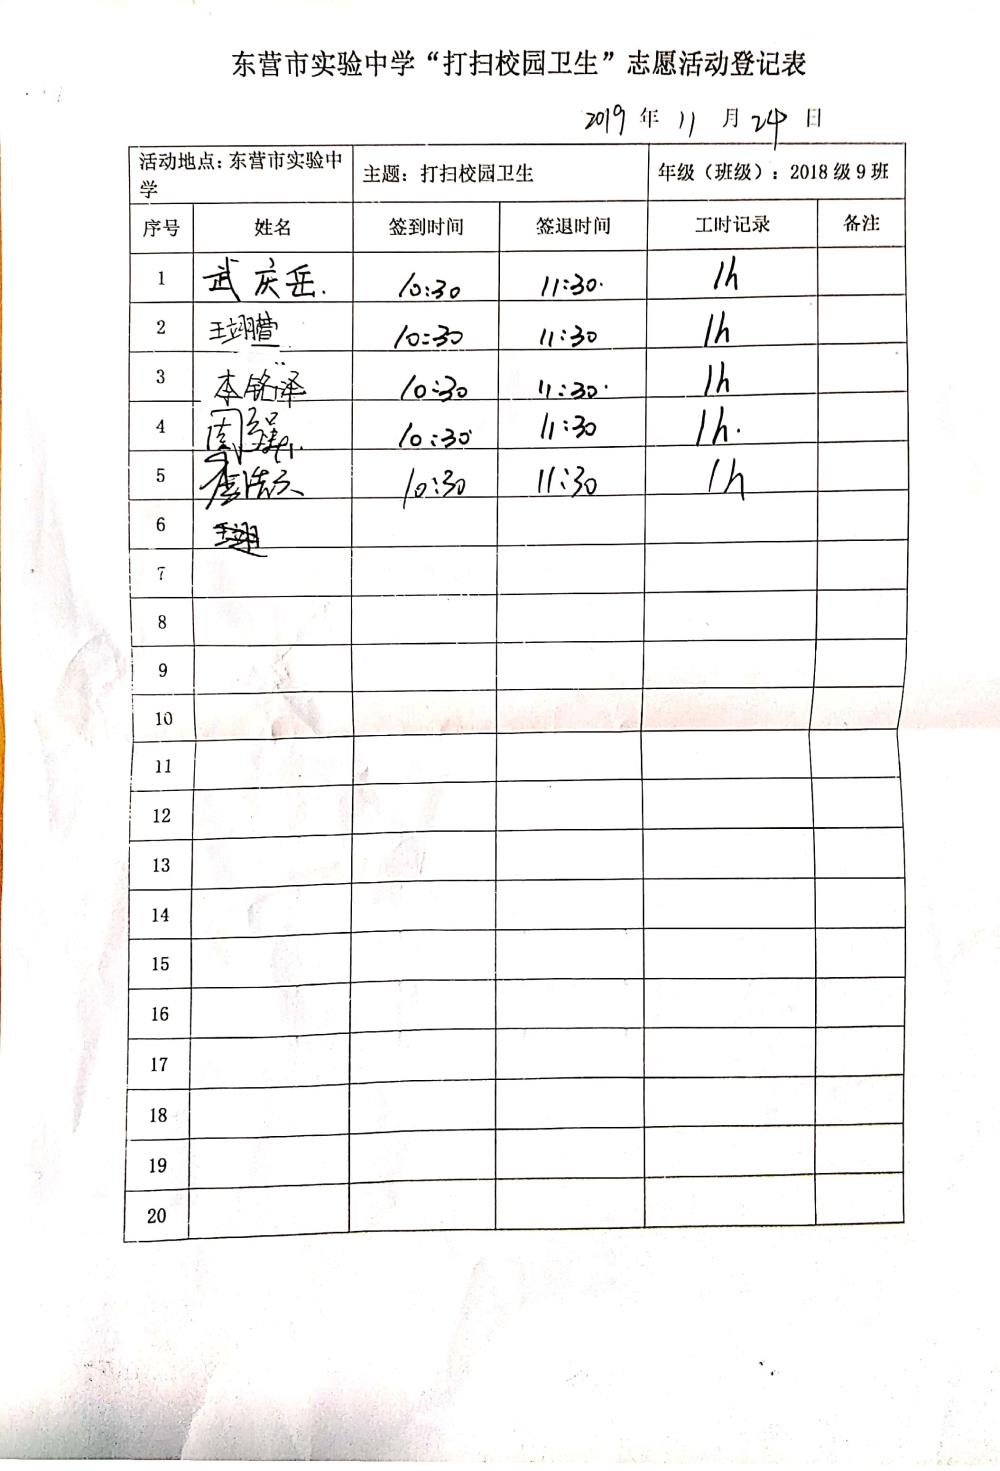 东营市实验中学“打扫校园卫生”志愿活动登记表
2019 年 11 月 24 日
活动地点：东营市实验中学 主题：打扫校园卫生 年级（班级）：2018 级 9 班
序号 姓名 签到时间 签退时间 工时记录 备注
1 武庆岳. 10:30 11:30. 1h
2 王翊 10:30 11:30 1h
3 李铭泽 10:30 11:30. 1h
4 周 10:30 11:30 1h.
5 李浩 10:30 11:30 1h
6
7
8
9
10
11
12
13
14
15
16
17
18
19
20